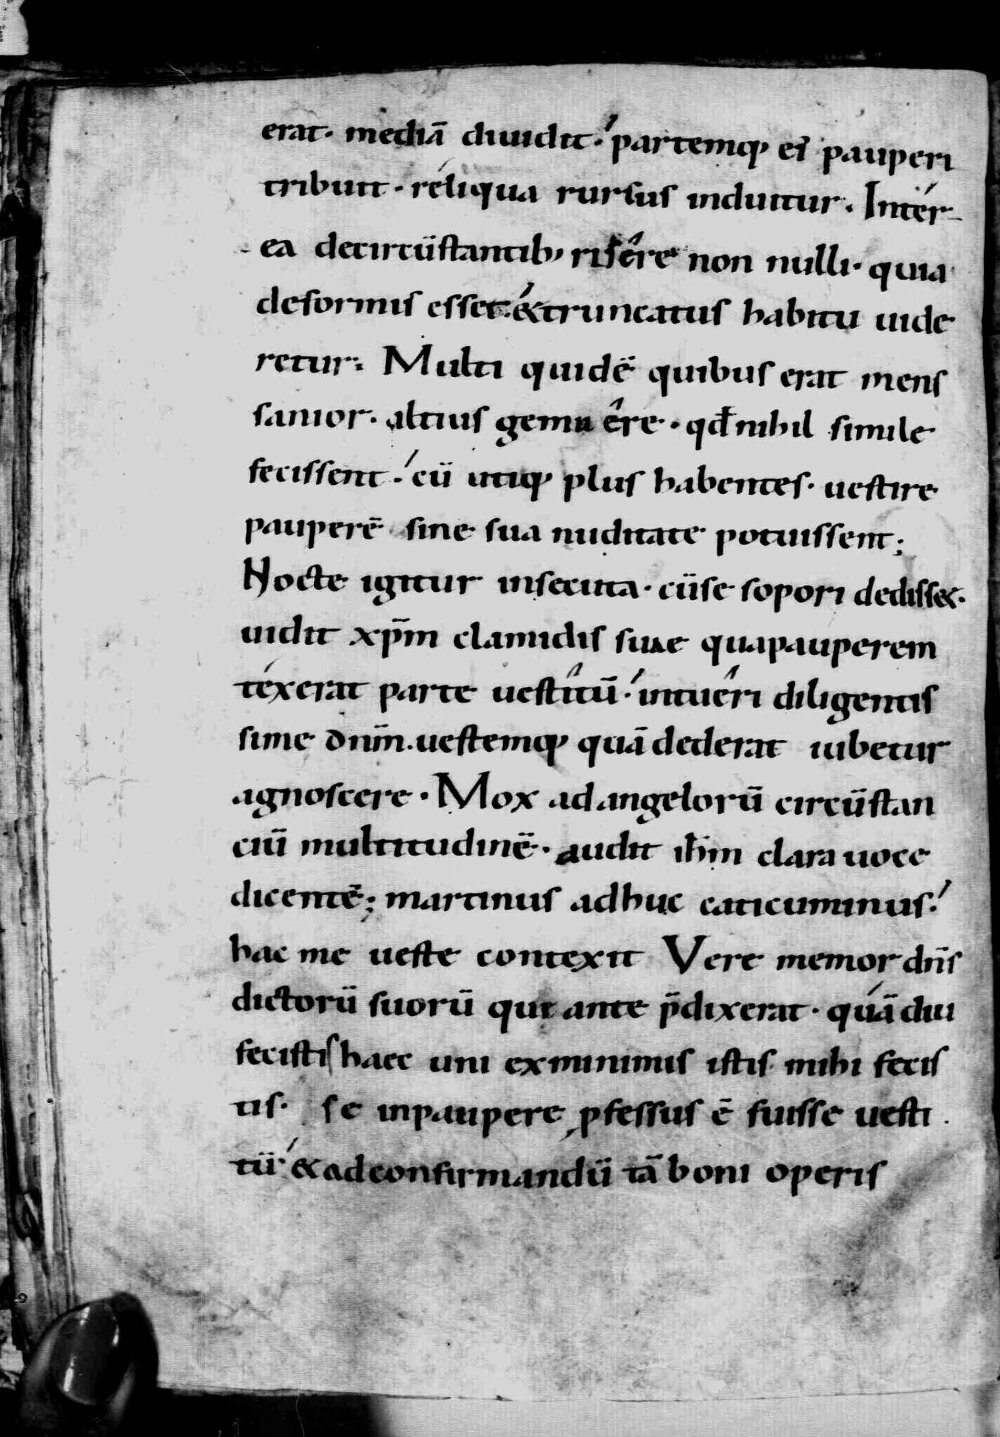 erat· mediā diuidit· partemq; ei pauperi
tribuit· reliqua rursus induitur· Inter-
ea decircūstantib; risere non nulli· quia
deformis esset· &truncatus habitu uide
retur· Multi quidē quibus erat mens
sanior· altius gemu ere· qđ nihil simile
fecissent· cū utiq; plus habentes· uestire
pauperē sine sua nuditate potuissent;
Nocte igitur insecuta· cūse sopori dedisset·
uidit xp̄m clamidis suae quapauperem
texerat parte uestitū· intueri diligentis
sime dn̄m· uestemq; quā dederat iubetur
agnoscere· Mox adangelorū circūstan
ciū multitudinē· audit ih̄m clara uoce
dicentē; martinus adhuc caticuminus·
hac me ueste contexit Vere memor dn̄s
dictorū suorū qui ante p̄dixerat· quādiu
fecistis haec uni exminimis istis mihi fecis
tis· se inpaupere p̱fessus ē fuisse uesti
tū· &adconfirmandū tā boni operis